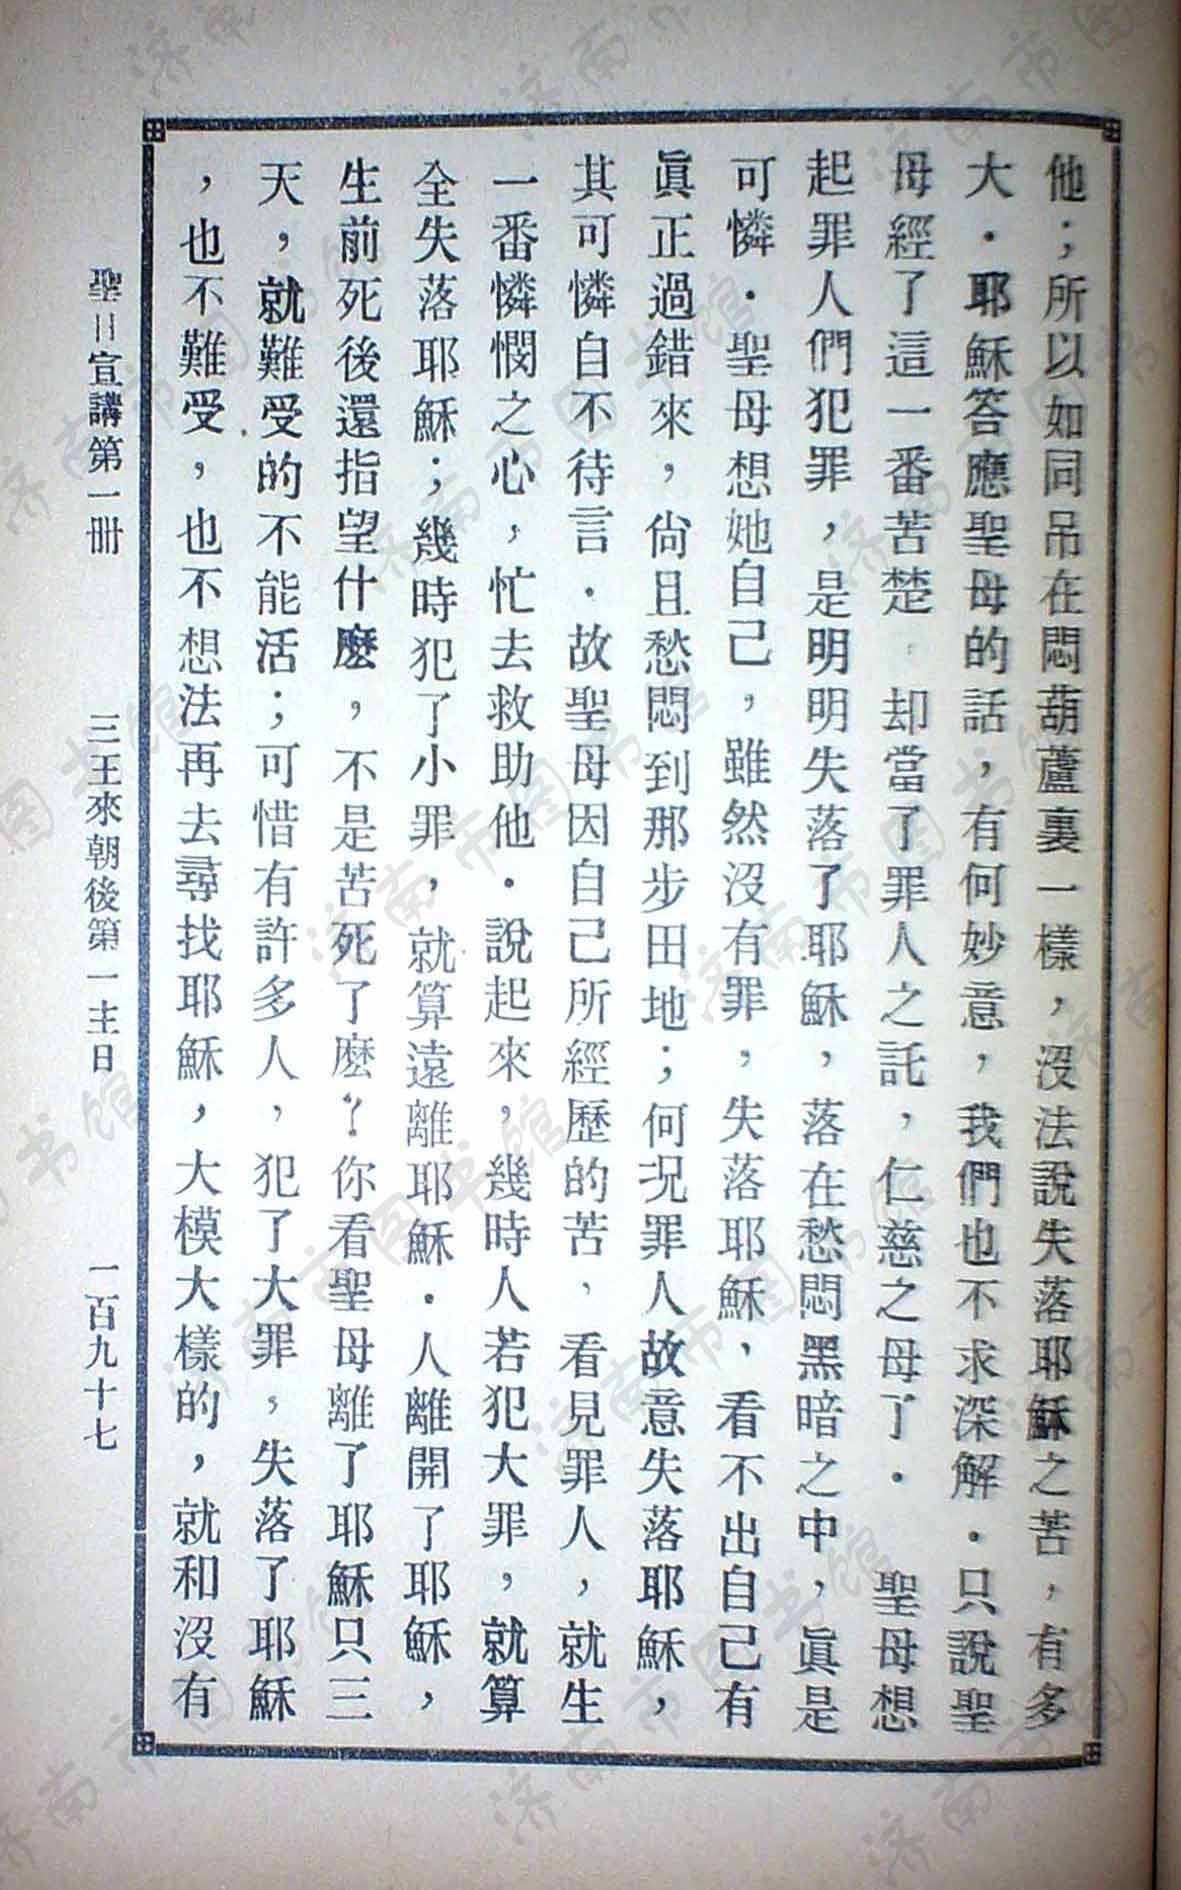 他；所以如同吊在悶葫蘆裏一樣，沒法說失落耶穌之苦，有多
大．耶穌答應聖母的話，有何妙意，我們也不求深解．只說聖
母經了這一番苦楚，却當了罪人之託，仁慈之母了．　聖母想
起罪人們犯罪，是明明失落了耶穌，落在愁悶黑暗之中，眞是
可憐．聖母想她自己，雖然沒有罪，失落耶穌，看不出自己有
眞正過錯來，尙且愁悶到那步田地；何况罪人故意失落耶穌，
其可憐自不待言．故聖母因自己所經歷的苦，看見罪人，就生
一番憐憫之心，忙去救助他．說起來，幾時人若犯大罪，就算
全失落耶穌；幾時犯了小罪，就算遠離耶穌．人離開了耶穌，
生前死後還指望什麽，不是苦死了麽？你看聖母離了耶穌只三
天，就難受的不能活；可惜有許多人，犯了大罪，失落了耶穌
，也不難受，也不想法再去尋找耶穌，大模大樣的，就和沒有
聖日宣講第一册　三王來朝後第一主日　一百九十七
济南市图书馆